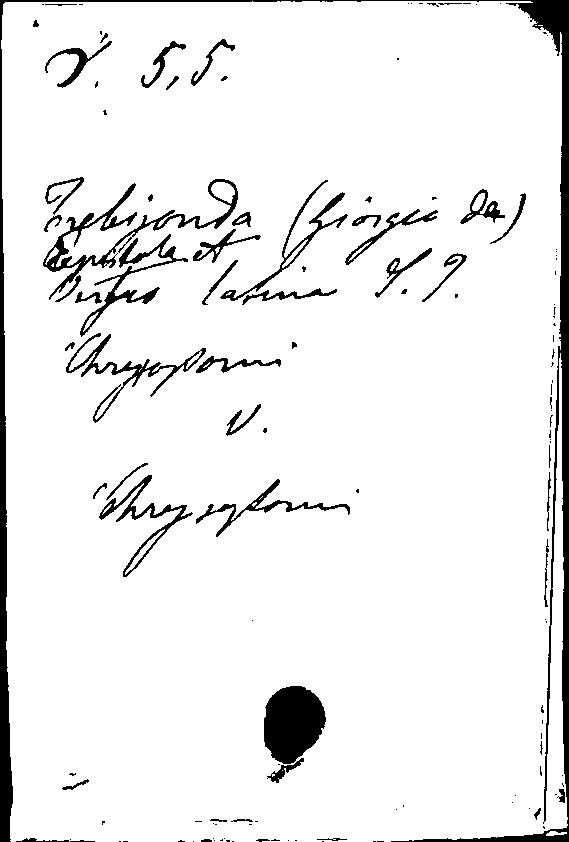 V. 5,5.
Trebisonda (Giorgio da)
Epistola et
latina S. J.
Chrysostomi
V.
Chrysostomi